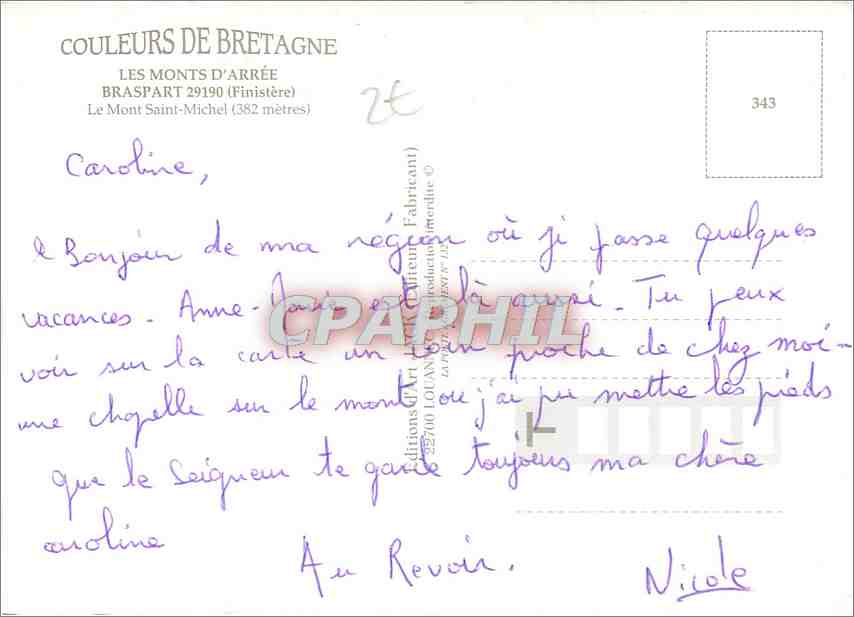 COULEURS DE BRETAGNE
LES MONTS D'ARRÉE
BRASPART 29190 (Finistère)
Le Mont Saint-Michel (382 mètres)
2€
343
Caroline,
Bonjour de ma région où j'i passe quelques
vacances. Anne-Marie est là aussi. Tu peux
voir sur la carte un coin proche de chez moi -
une chapelle sur le mont où j'ai pu mettre les pieds
que le Seigneur te garde toujours ma chère
caroline
Au Revoir.
Nicole
Éditions d'Art JACK (Éditeur Fabricant)
22700 LOUANNEC Reproduction interdite ©
CPAPHIL